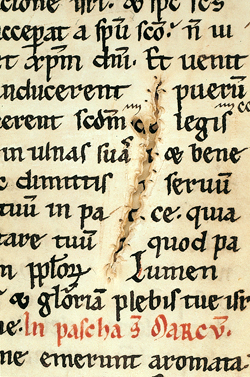 cione isrl. & sp̄c scs
accepat a sp̄u scō. n̄ ui
et xp̄m dn̄i. Et uenit
inducerent puerū
erent scdm̄ legis
in ulnas suā & bene
c dimittis seruū
tuū in pa ce. quia
tare tuū quod pa
Lumen
& glōriam plebis tue isr
ne. In pascha Marcū.
ne emerunt aromata